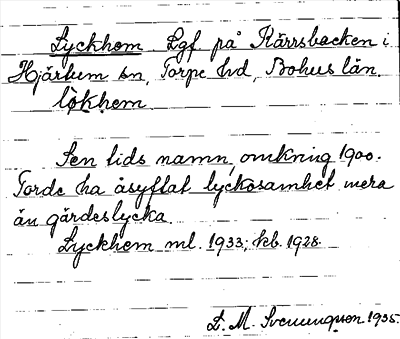 Lyckhem Lgf. på Kärrsbacken i
Hjärtum sn, Torpe hd, Bohus län.
lỳkhem.
Sen tids namn, omkring 1900.
Torde ha åsyftat lyckosamhet mera
än gärdeslycka.
Lyckhem ml. 1933; kb. 1928.
D. M. Svenungsson 1935.